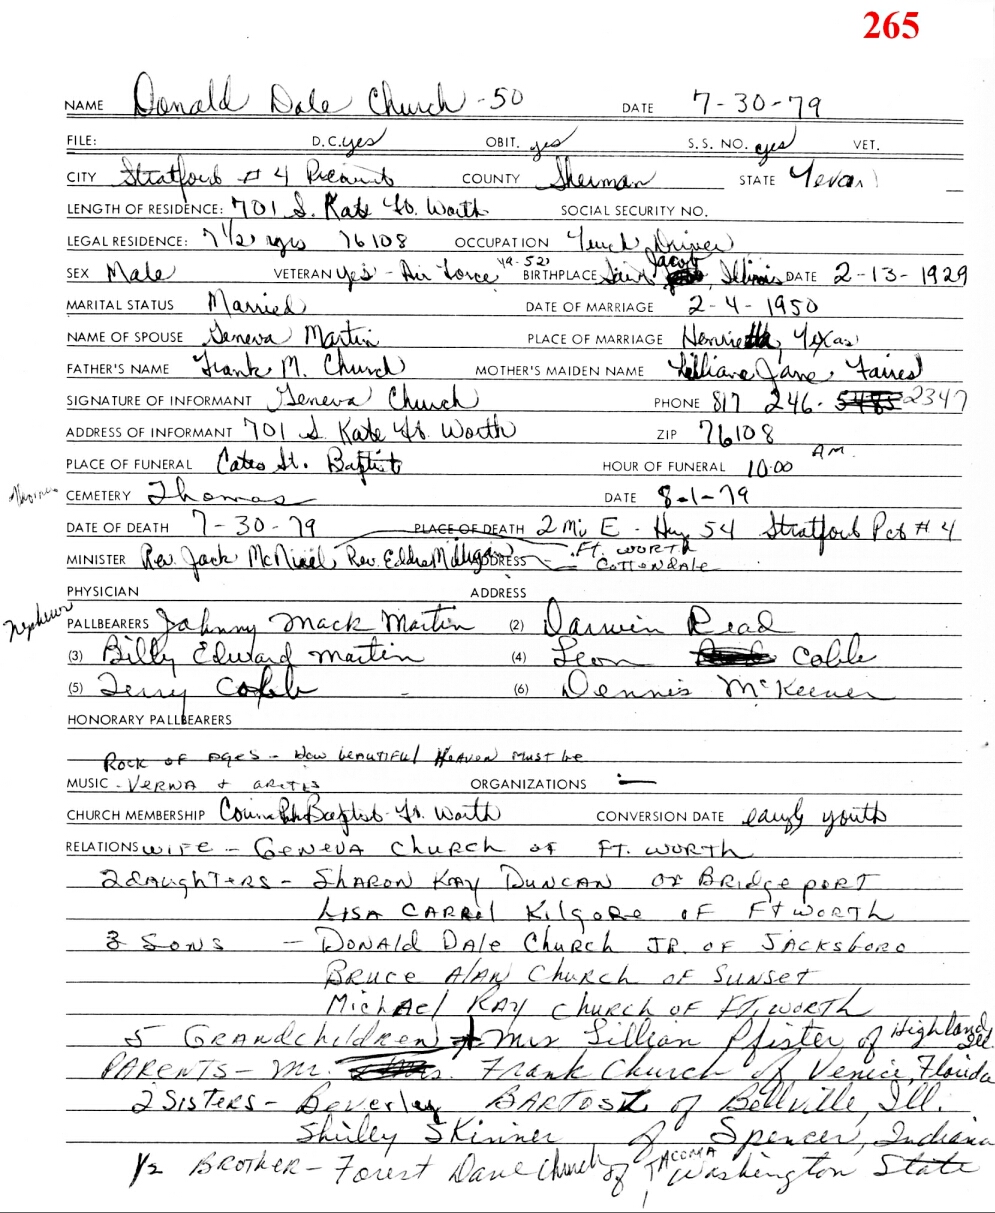 265
NAME Donald Dale Church - 50 DATE 7-30-79
FILE: D.C. yes OBIT. yes S.S. NO. yes VET.
CITY Stratford # 4 Precinct COUNTY Sherman STATE Texas
LENGTH OF RESIDENCE: 701 S. Kate Ft. Worth SOCIAL SECURITY NO.
LEGAL RESIDENCE: 7 1/2 yrs 76108 OCCUPATION Truck Driver
SEX Male VETERAN yes - Air Force 49-52 BIRTHPLACE Saint Jacob, Illinois DATE 2-13-1929
MARITAL STATUS Married DATE OF MARRIAGE 2-4-1950
NAME OF SPOUSE Geneva Martin PLACE OF MARRIAGE Henrietta, Texas
FATHER'S NAME Frank M. Church MOTHER'S MAIDEN NAME Lilliane Jane Faires
SIGNATURE OF INFORMANT Geneva Church PHONE 817 246- 5485 2347
ADDRESS OF INFORMANT 701 S. Kate Ft. Worth ZIP 76108
PLACE OF FUNERAL Cates St. Baptist HOUR OF FUNERAL 10:00 AM.
CEMETERY Thomas DATE 8-1-79
DATE OF DEATH 7-30-79 PLACE OF DEATH 2 Mi E - Hwy 54 Stratford Pct # 4
MINISTER Rev. Jack McNiel, Rev. Eddie Milligan ADDRESS Ft. Worth
Cottondale
PHYSICIAN ADDRESS
Nephews PALLBEARERS Johnny Mack Martin (2) Darwin Read
(3) Billy Edward Martin (4) Leon Cobb
(5) Terry Cobb - (6) Dennis McKeever
HONORARY PALLBEARERS
Rock of Ages - How beautiful Heaven Must be
MUSIC - Verna + Artis ORGANIZATIONS —
CHURCH MEMBERSHIP Baptist - Ft. Worth CONVERSION DATE early youth
RELATIONS Wife - Geneva Church of Ft. Worth
2 daughters - Sharon Kay Duncan of Bridgeport
Lisa Carrol Kilgore of Ft Worth
3 Sons - Donald Dale Church Jr. of Jacksboro
Bruce Alan Church of Sunset
Michael Ray Church of Ft. Worth
5 Grandchildren + Mrs Lillian Pfister of Highland Ill.
Parents - Mr. Frank Church of Venice, Florida
2 Sisters - Beverley Bartosz of Bellville, Ill.
Shirley Skinner of Spencer, Indiana
1/2 Brother - Forest Dave Church of Tacoma Washington State